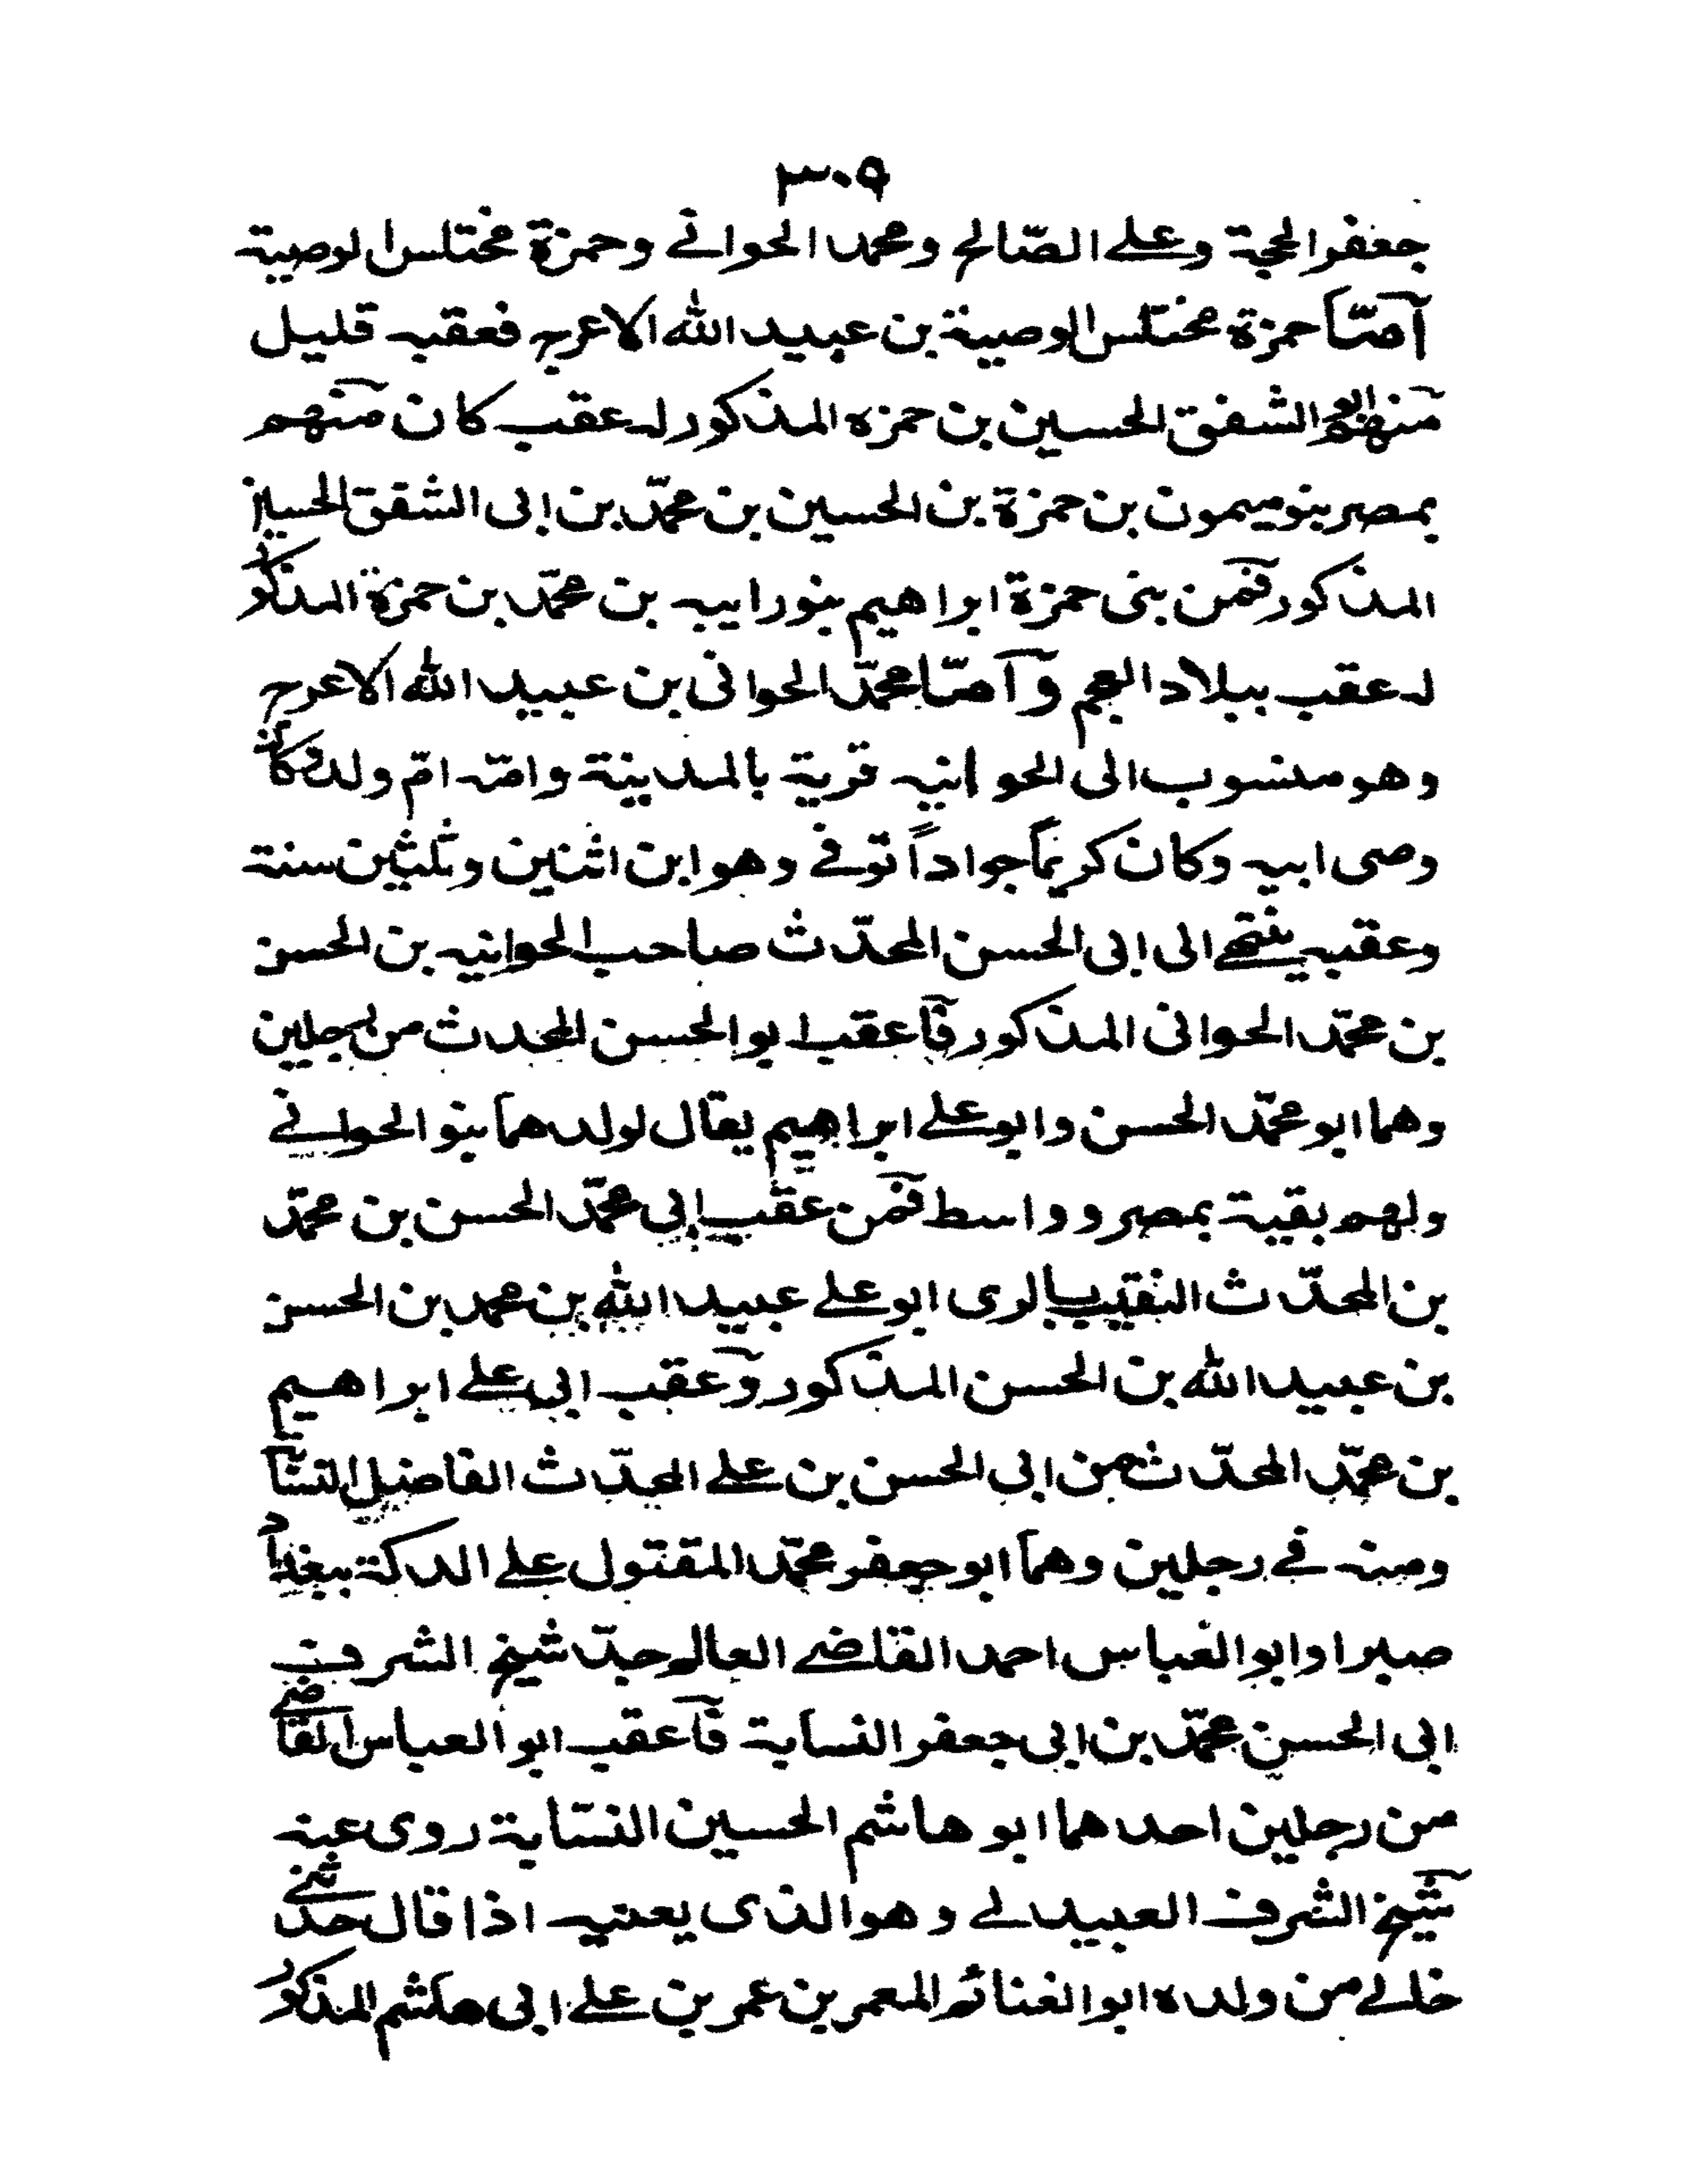 ٣٠٩
جعفر الحجة وعلے الصّالح ومحمد الحوانے وحمزة مختلس الوصية
آمّا حمزة مختلس الوصية بن عبيد الله الاعرج فعقبه قليل
منهم ابو الشفق الحسين بن حمزه المذكور له عقب كان منهم
بمصر بنو ميمون بن حمزة بن الحسين بن محمّد بن ابى الشقق الحسين
المذكور فمن بنى حمزة ابراهيم بنورابيه بن محمّد بن حمزة المذكور
له عقب ببلاد العجم وآمّا محمّد الحوانى بن عبيد الله الاعرج
وهو منسوب الى الحوانيه قرية بالمدينة وامّه امّ ولد وكان
وصى ابيه وكان كريماً جواداً توفے وهو ابن اثنين وثلثين سنة
وعقبه ينتهے الى ابى الحسن المحدّث صاحب الحوانيه بن الحسن
بن محمّد الحوانى المذكور فآعقب ابو الحسن المحدث من رجلين
وهما ابو محمّد الحسن وابو علے ابراهيم يقال لولدهما بنو الحوانے
ولهم بقية بمصر وواسط فمن عقب ابى محمّد الحسن بن محمّد
بن المحدّث النقيب بالرى ابو علے عبيد الله بن محمد بن الحسن
بن عبيد الله بن الحسن المذكور وعقب ابى علے ابراهيم
بن محمّد المحدّث من ابى الحسن بن علے المحدّث الفاضل النسّا
ومنه فے رجلين وهما ابو جعفر محمّد المقتول علے الدكة ببغداد
صبرا وابو العباس احمد القاضے العالم جدّ شيخ الشرف
ابى الحسن محمّد بن ابى جعفر النسابة فآعقب ابو العباس القاضے
من رجلين احدهما ابو هاشم الحسين النسّابة روى عنه
شيخ الشرف العبيدلے وهو الذى يعنيه اذا قال حدثنے
خالے من ولده ابو الغنائم المعمر بن عمر بن علے ابى هاشم المذكور